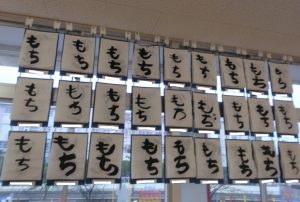 もち もち もち もち もち もち もち もち もち
もち もち もち もち もち もち もち もち もち
もち もち もち もち もち もち もち もち もち